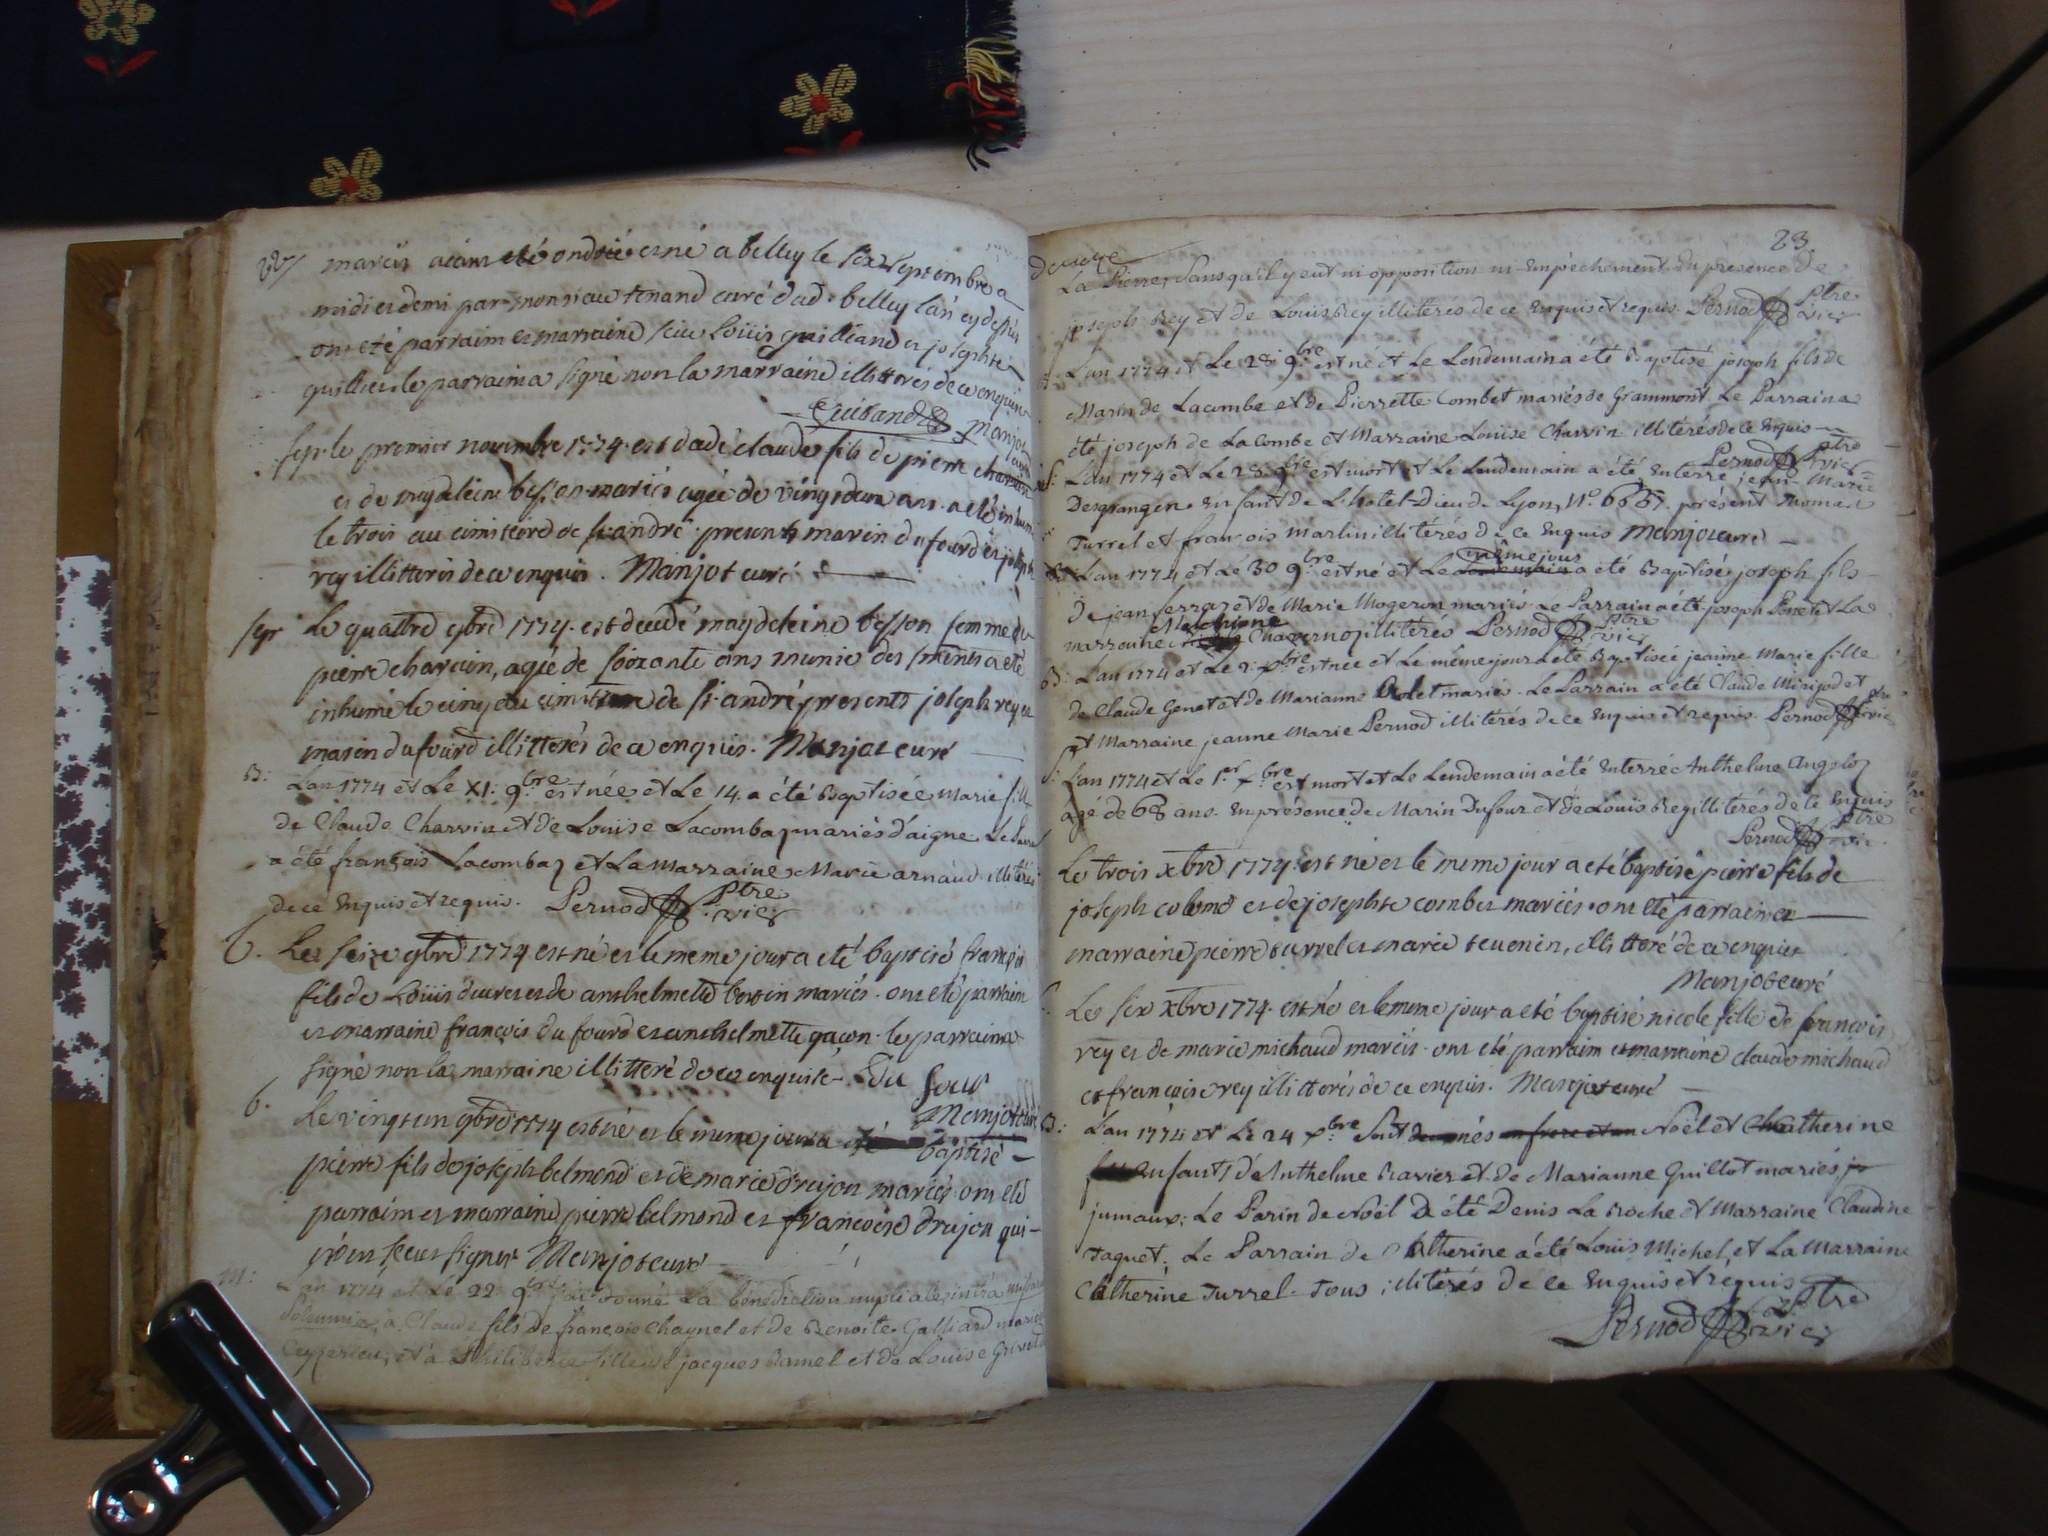 22/ mariés aiant été ondoié et né a belley le six septembre a
midi et demi par monsieur tenand curé dud. belley l'an cy dessus
ont été parrain et marraine sieur Loüis guilliand et josephte
le parrain a signé non la marraine illitterés de ce enquise
Guiliand manjot curé
sepr. le premier novembre 1774. est dcdé claude fils de pierre charvin
et de magdeleine besson mariés agée de vingt deux ans a eté inhumé
le trois au cimitiere de st andré. presents marin du fourd et joseph
rey illitterés de ce enquis. Manjot curé
sepr Le quattre 9bre 1774. est decedé magdeleine besson femme de
pierre charvin, agée de soixante ans munie des sacrements a eté
inhumé le cinq au cimitiere de st. andré presents joseph rey et
marin du fourd illitterés de ce enquis. Manjot curé
B: Lan 1774 et Le XI. 9.bre est née et Le 14. a été Baptisée marie fille
de Claude Charvin et de Loüise Lacombaz mariés d'aigne Le Parrain
a été françois Lacombaz et La Marraine Marie arnaud illitérés
de ce Enquis et requis. Pernod Ptre vice
b. Le seize 9bre 1774 est né et le meme jour a eté baptisé françois
fils de Loüis et de anthelmette mariés. ont eté parrain
et marraine françois du fourd et anthelmette gacon. le parrain a
signé non la marraine illitteré de ce enquise. Du four
Manjot curé
b. Le vingt un 9bre 1774 est né et le meme jour a eté baptisé
pierre fils de joseph belmond et de marie drujon mariés ont eté
parrain et marraine pierre belmond et francoise drujon qui
n'ont sceu signer Manjot curé
M: Lan 1774 et Le 22 9.bre j'ai donné La bénédiction nuptiale, intra missarum
solemnia, à Claude fils de françois Chaynel et de Benoite Galliard mariés
Ceyzerieu, et a Philiberte fille de jacques Ramel et de Louise
23.
de cuze
La Pierre, Sans qu'il y eut ni opposition ni Empêchement. En presence De
joseph Rey et de Louis Rey illitérés de ce Enquis et requis. Pernod Ptre vice
B: Lan 1774 et Le 28. 9.bre est né et Le Lendemain a été Baptisé joseph fils de
Marin de Lacombe et de Pierrette Combet mariés de Grammont. Le Parrain a
été joseph de La Combe et Marraine Louise Charvin illitérés de ce Enquis
Pernod Ptre vice
S: Lan 1774 et Le 28 9.bre est mort et Le Lendemain a été Enterré jean-Marie
Desgranges Enfant de L'hotel-Dieu de Lyon, N.o 6657. présent Thomas
Turrel et françois martin illitérés de ce Enquis Manjot curé
B: Lan 1774 et Le 30 9.bre est né et Le même jour a été Baptisé joseph fils
De jean ferraz et de Marie Mogeron mariés. Le Parrain a été joseph et La
marraine Chavernoz illitérés Pernod Ptre vice
B: Lan 1774 et Le 1. Xbre est née et Le même jour a été Baptisée jeanne Marie fille
de Claude Genet et de Marianne mariés. Le Parrain a été Claude et
et Marraine jeanne Marie Pernod illitérés de ce Enquis et requis. Pernod Ptre vice
S: Lan 1774 et Le 1.er Xbre est mort et Le Lendemain a été Enterré Anthelme
agé de 68 ans. En présence de Marin Dufour et de Louis Rey illitérés de ce Enquis
Pernod Ptre vic.
Le trois xbre 1774. est né et le meme jour a eté baptisé pierre fils de
joseph colomb et de josephte combet mariés. ont eté parrain et
marraine pierre turrel et marie tevenin, illitteré de ce enquis
Manjot curé
Le six xbre 1774. est né et le meme jour a eté baptisé nicole fille de francois
rey et de marie michaud mariés. ont eté parrain et marraine claude michaud
et francoise rey illitterés de ce enquis. Manjot curé
B: Lan 1774 et Le 24 Xbre Sont nés Noël et Catherine
Enfants d'Anthelme Ravier et de Marianne Guillot mariés
jumaux; Le Parin de Noël a été Denis La Roche et Marraine Claudine
Taquet; Le Parrain de Catherine a été Louis Michel, et La Marraine
Catherine Turrel. Tous illitérés de ce Enquis et réquis
Pernod Ptre vice